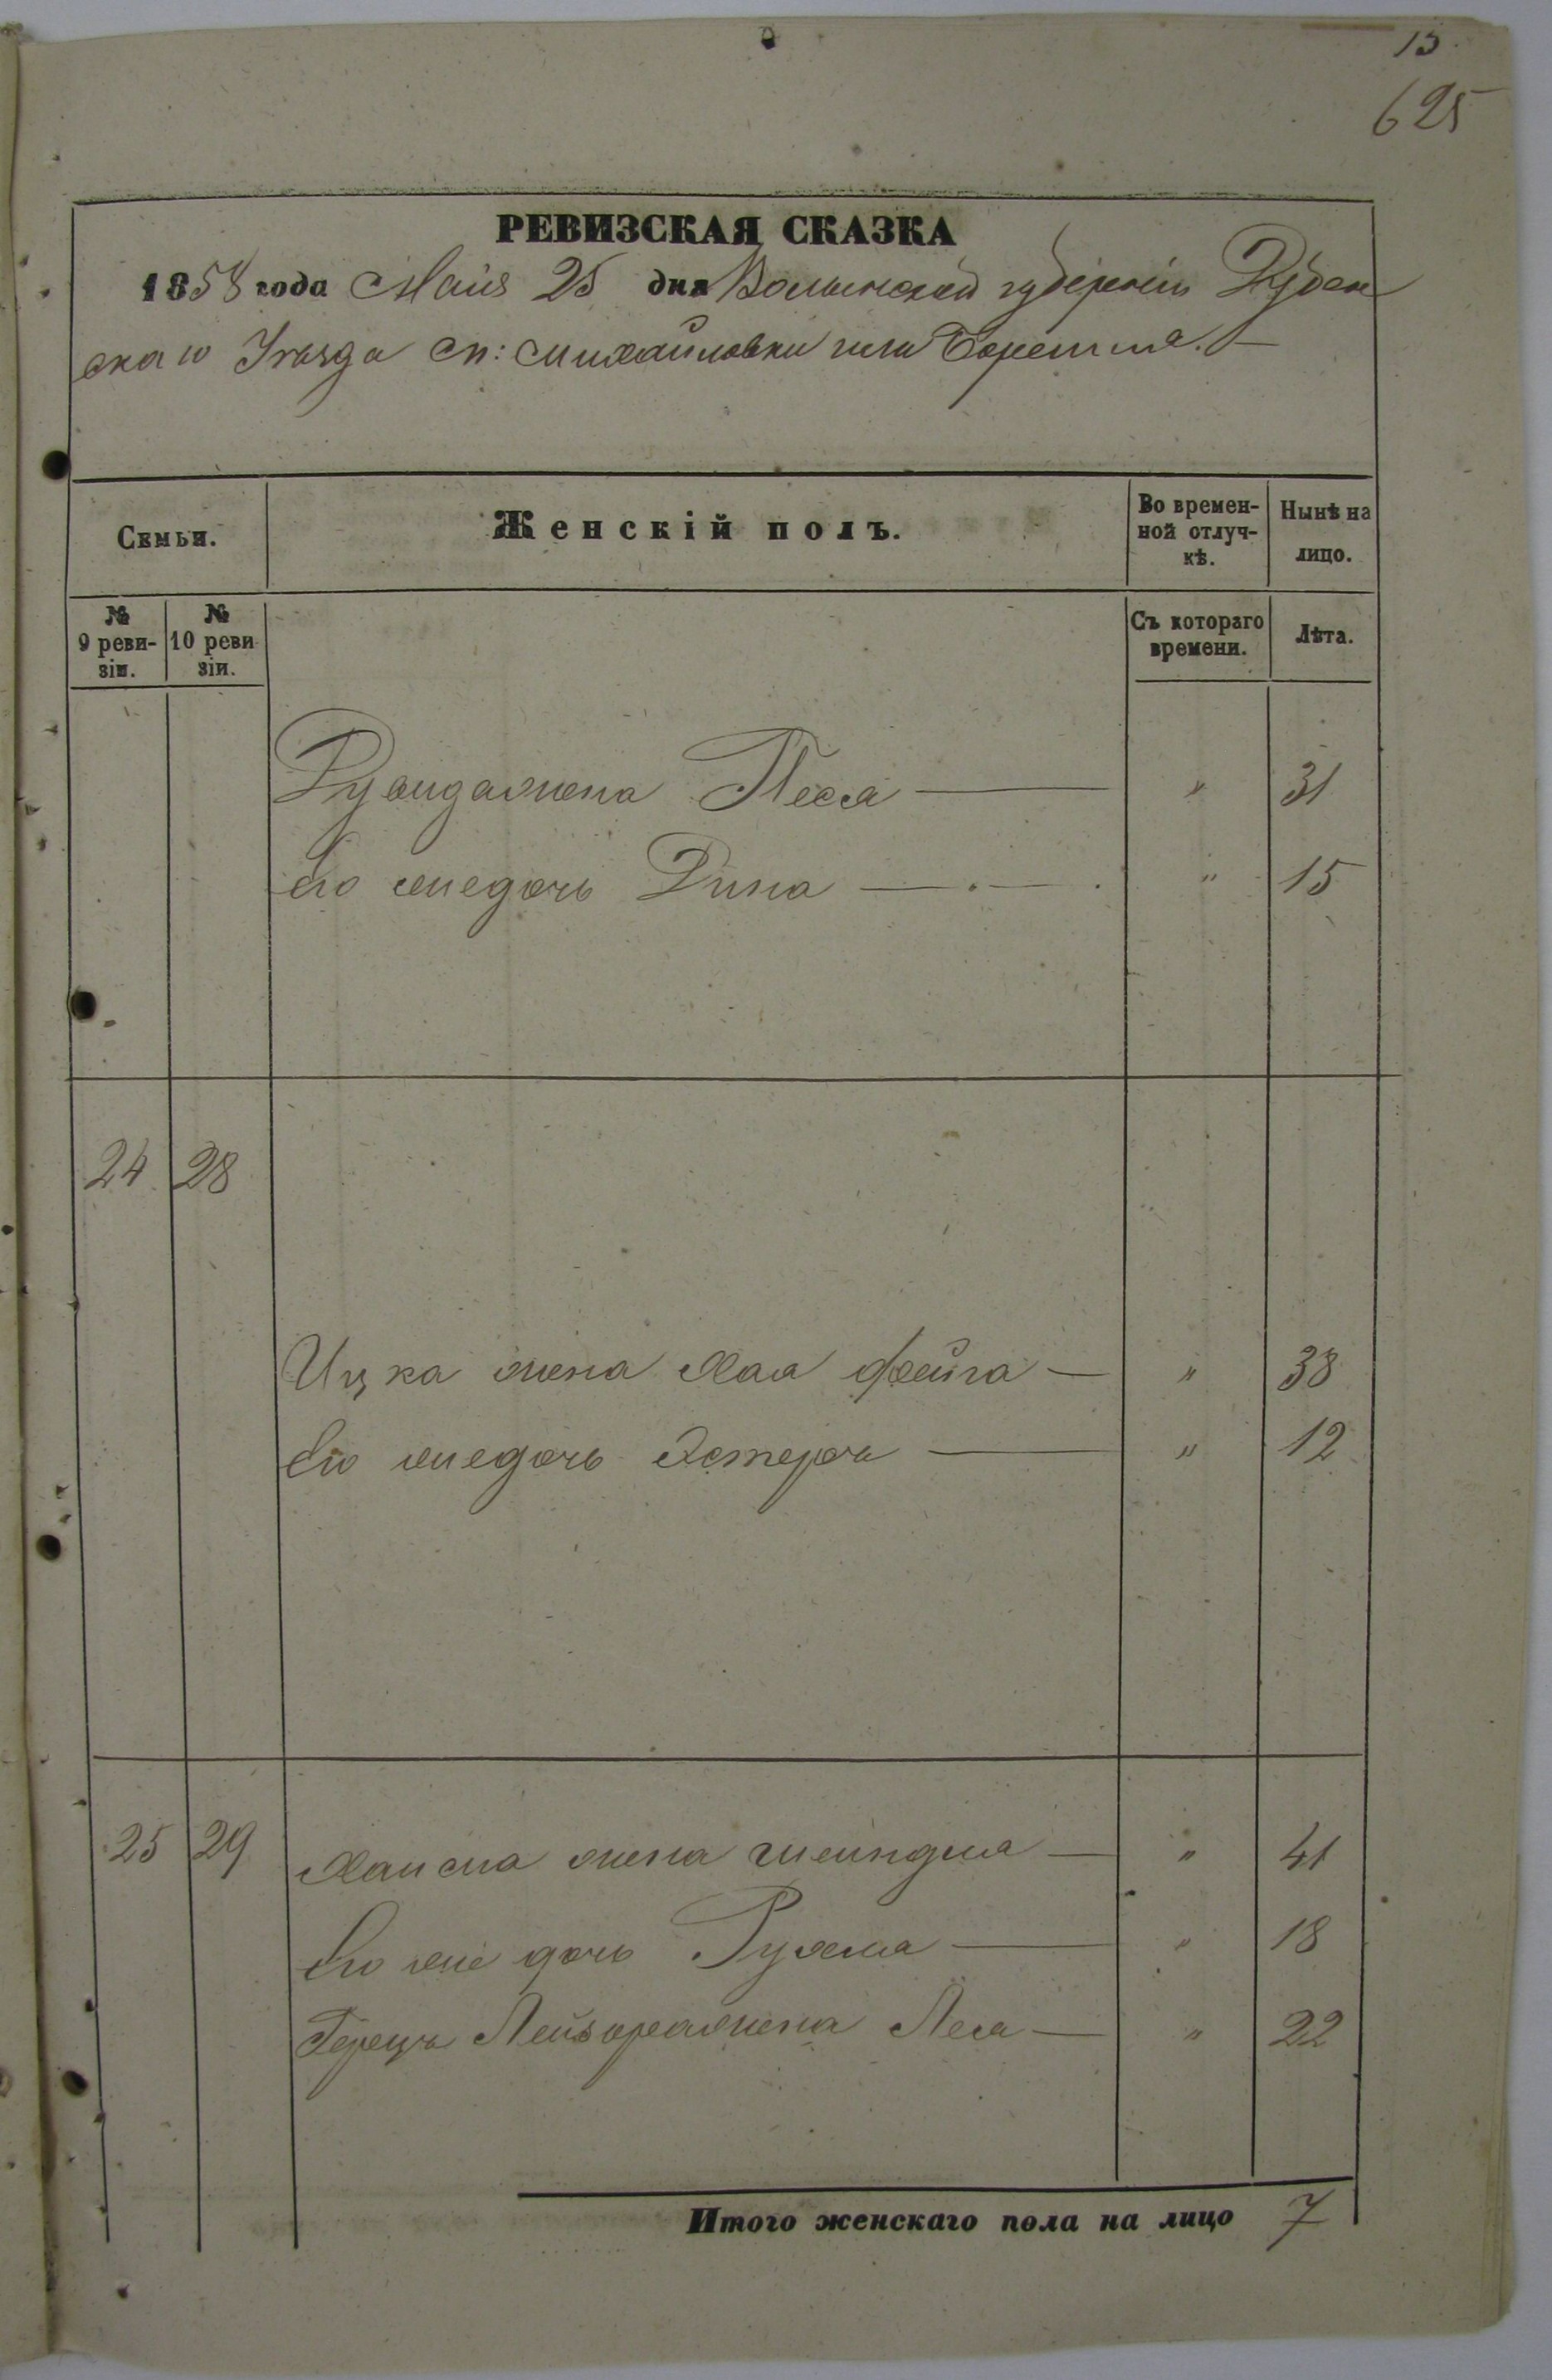 13.
625
РЕВИЗСКАЯ СКАЗКА
1858 года Маія 25 дня Волынской губерніи Дубен
скаго Уѣзда м: Михайловки или Боремля.
Семьи.
Женскій полъ.
Во времен-
ной отлуч-
кѣ.
Нынѣ на
лицо.
№
9 реви-
зіи.
№
10 реви
зіи.
Съ котораго
времени.
Лѣта.
жена Песя — " 31
Его же дочь Дина — " 15
24 28
Ицка жена Хая Фейга — " 38
Его же дочь Эстеръ — " 12
25 29
Хаима жена Шейндля — " 41
Его же дочь Рухля — " 18
Лейзора жена Леа — " 22
Итого женскаго пола на лицо 7